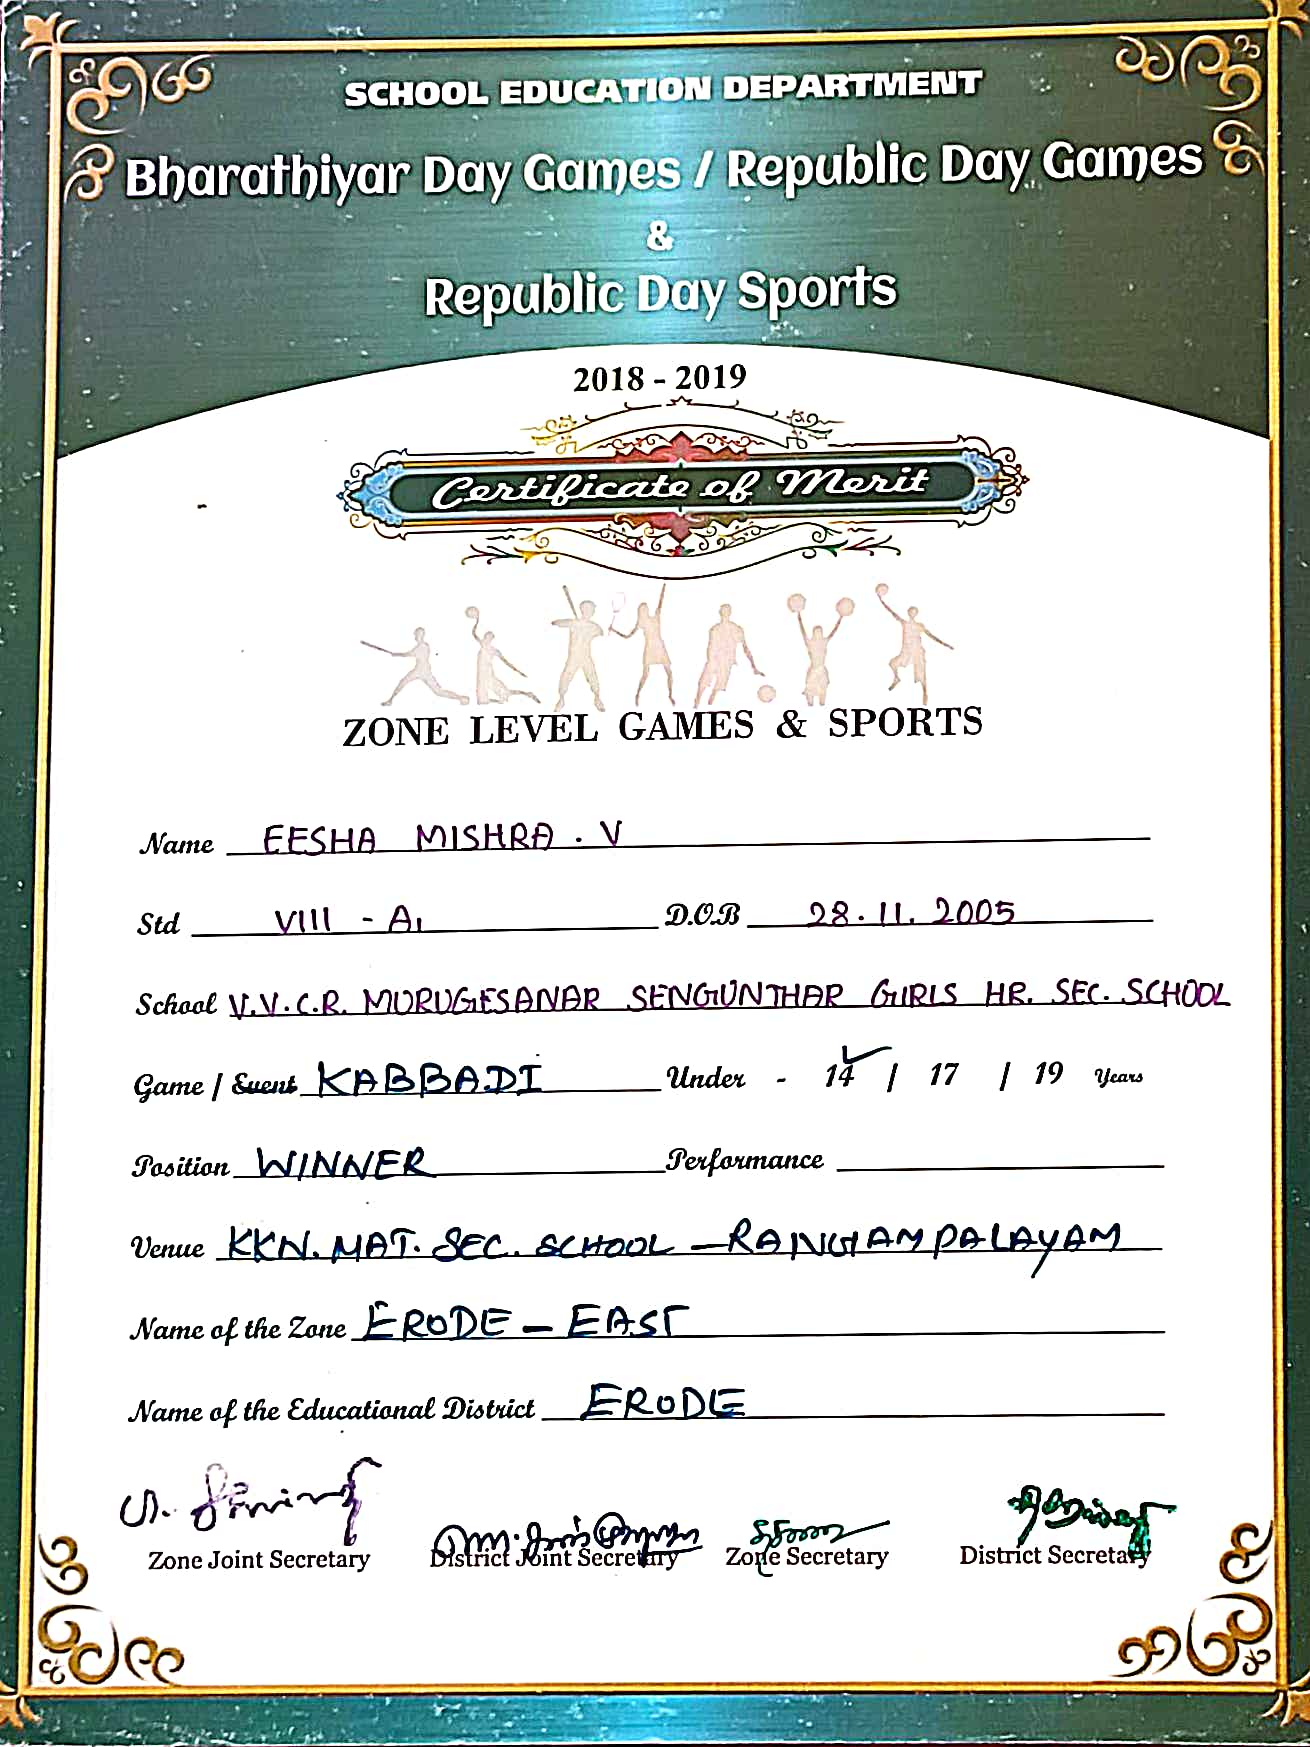 SCHOOL EDUCATION DEPARTMENT
Bharathiyar Day Games / Republic Day Games
&
Republic Day Sports
2018 - 2019
Certificate of Merit
ZONE LEVEL GAMES & SPORTS
Name EESHA MISHRA . V
Std VIII - A1 D.O.B 28. 11. 2005
School V.V.C.R. MURUGESANAR SENGUNTHAR GIRLS HR. SEC. SCHOOL
Game / Event KABBADI Under - 14 / 17 / 19 Years
Position WINNER Performance
Venue KKN. MAT. SEC. SCHOOL - RANGAMPALAYAM
Name of the Zone ERODE - EAST
Name of the Educational District ERODE
Zone Joint Secretary District Joint Secretary Zone Secretary District Secretary